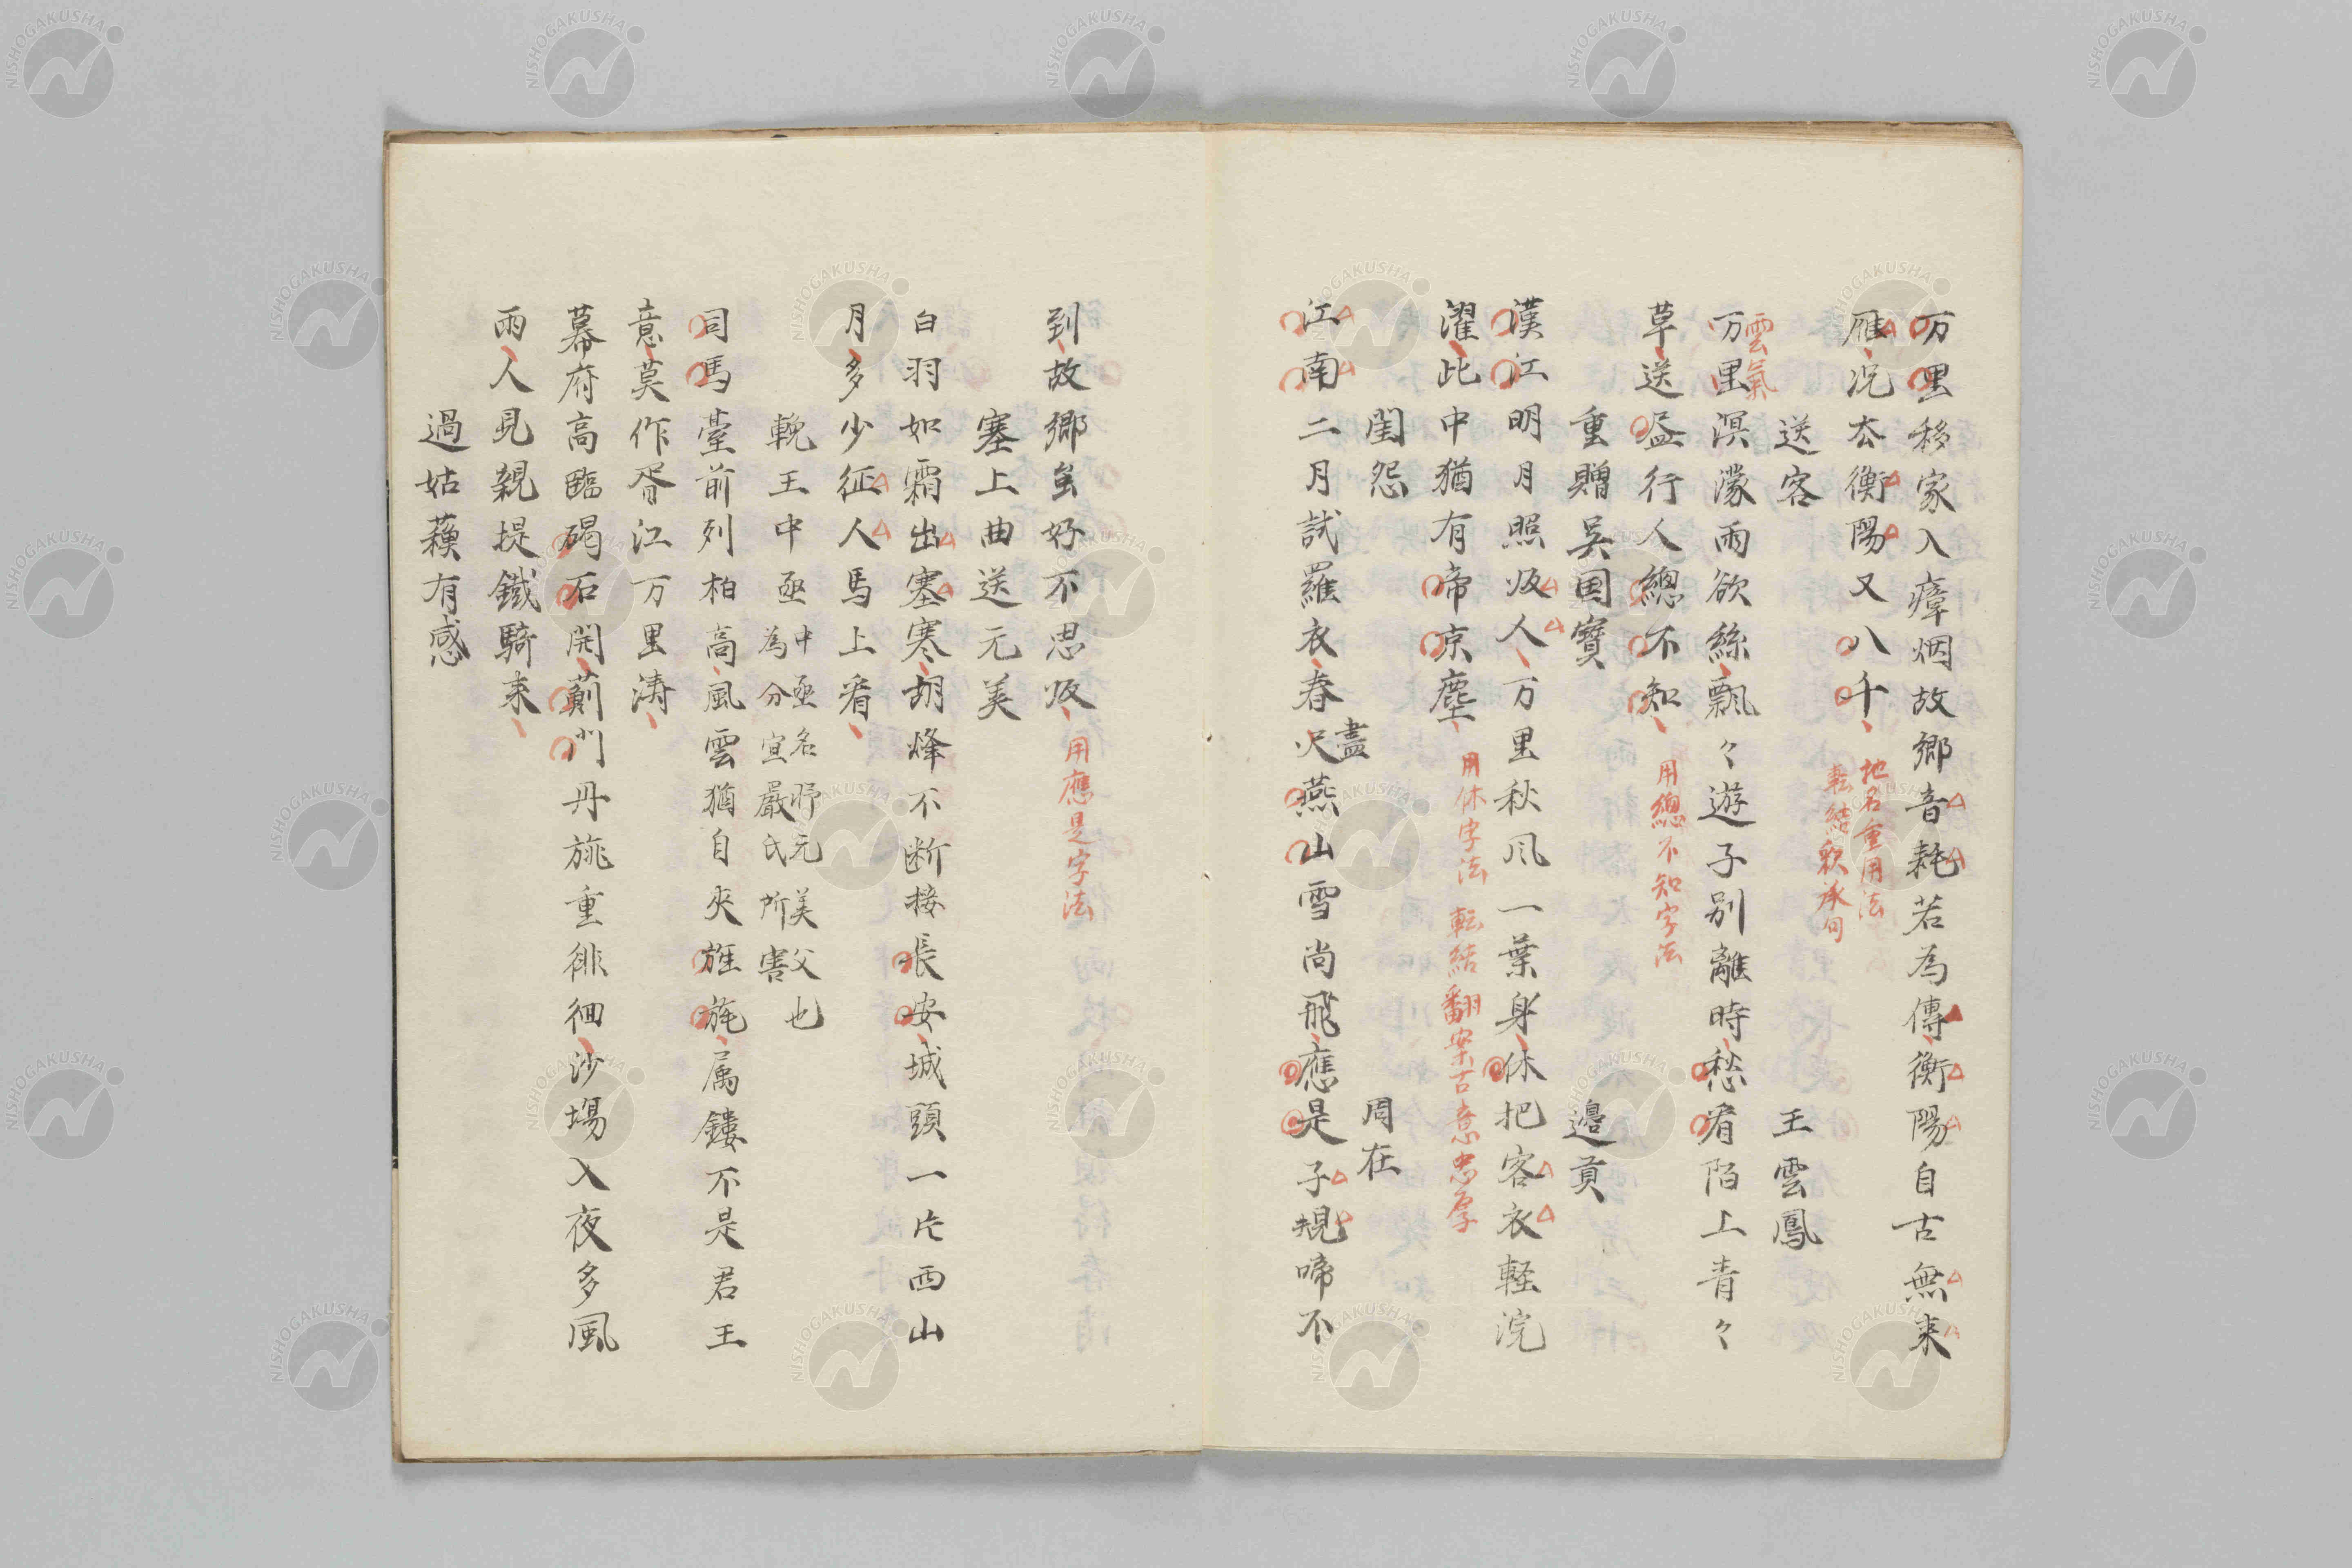 万里移家入瘴烟故郷音耗若為傳衡陽自古無来
雁况去衡陽又八千
地名重用法
転結釈承句
送客　王雲鳳
雲氣
万里溟濛雨欲絲飄々遊子別離時愁看陌上青々
草送盡行人總不知
用總不知字法
重贈吴国寳　邉貢
漢江明月照皈人万里秋风一葉身休把客衣軽浣
濯此中猶有帝京塵
用休字法　転結翻案古意忠厚
閨怨　周在
江南二月試羅衣春尽燕山雪尚飛應是子規啼不
盡
到故郷虽好不思皈
用應是字法
塞上曲送元美
白羽如霜出塞寒胡烽不断接長安城頭一片西山
月多少征人馬上看
輓王中丞
中丞名忬元美父也
為分宜嚴氏所害
司馬臺前列柏高風雲猶自夾旌旄属鏤不是君王
意莫作胥江万里濤
幕府高臨碣石開薊門丹旐重徘徊沙塲入夜多風
雨人見親提鐵騎来
過姑蘓有感
NISHOGAKUSHA